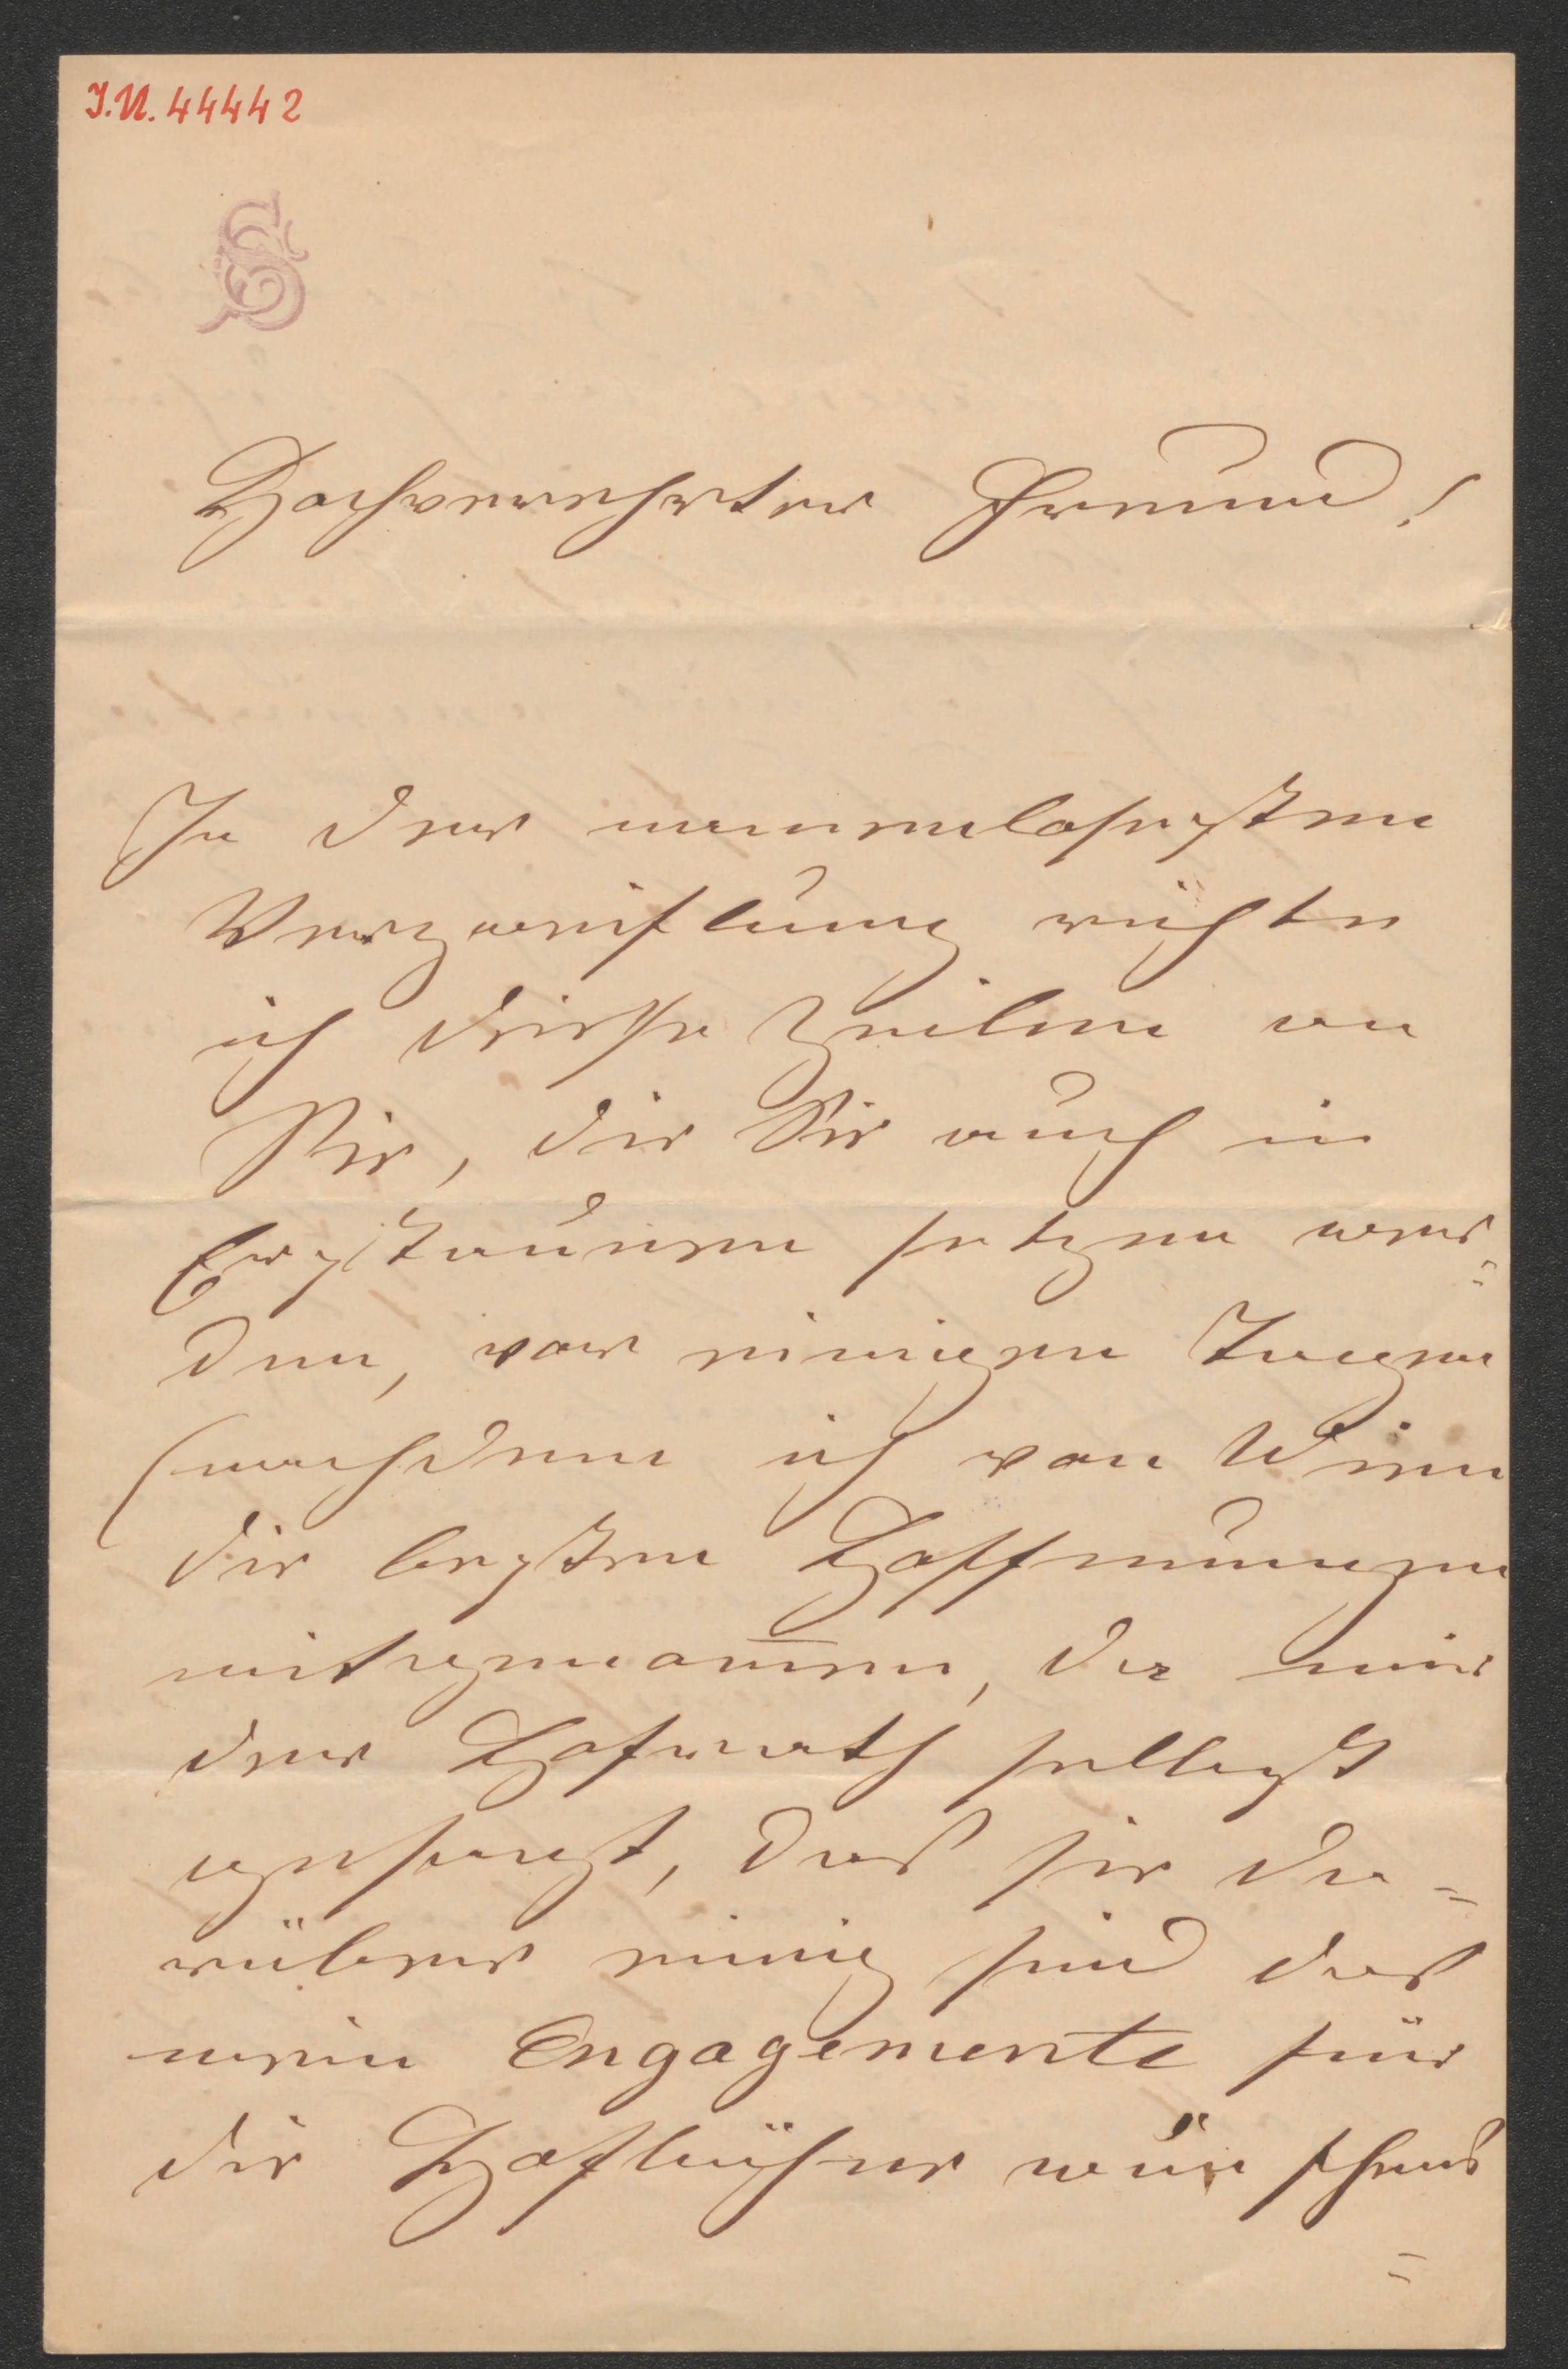 I.N. 44442
Hochverehrter Freund!
In der namenlosesten
Verzweiflung richte
ich diese Zeilen an
Sie, die Sie auch in
Erstaunen setzen wer=
den, vor einigen Tagen
(nachdem ich von Wien
die besten Hoffnungen
mitgenom̄en, da mir
der Hofrath selbst
gesagt, daß sie da=
rüber einig sind daß
mein Engagement für
die Hofbühne wün schens
=